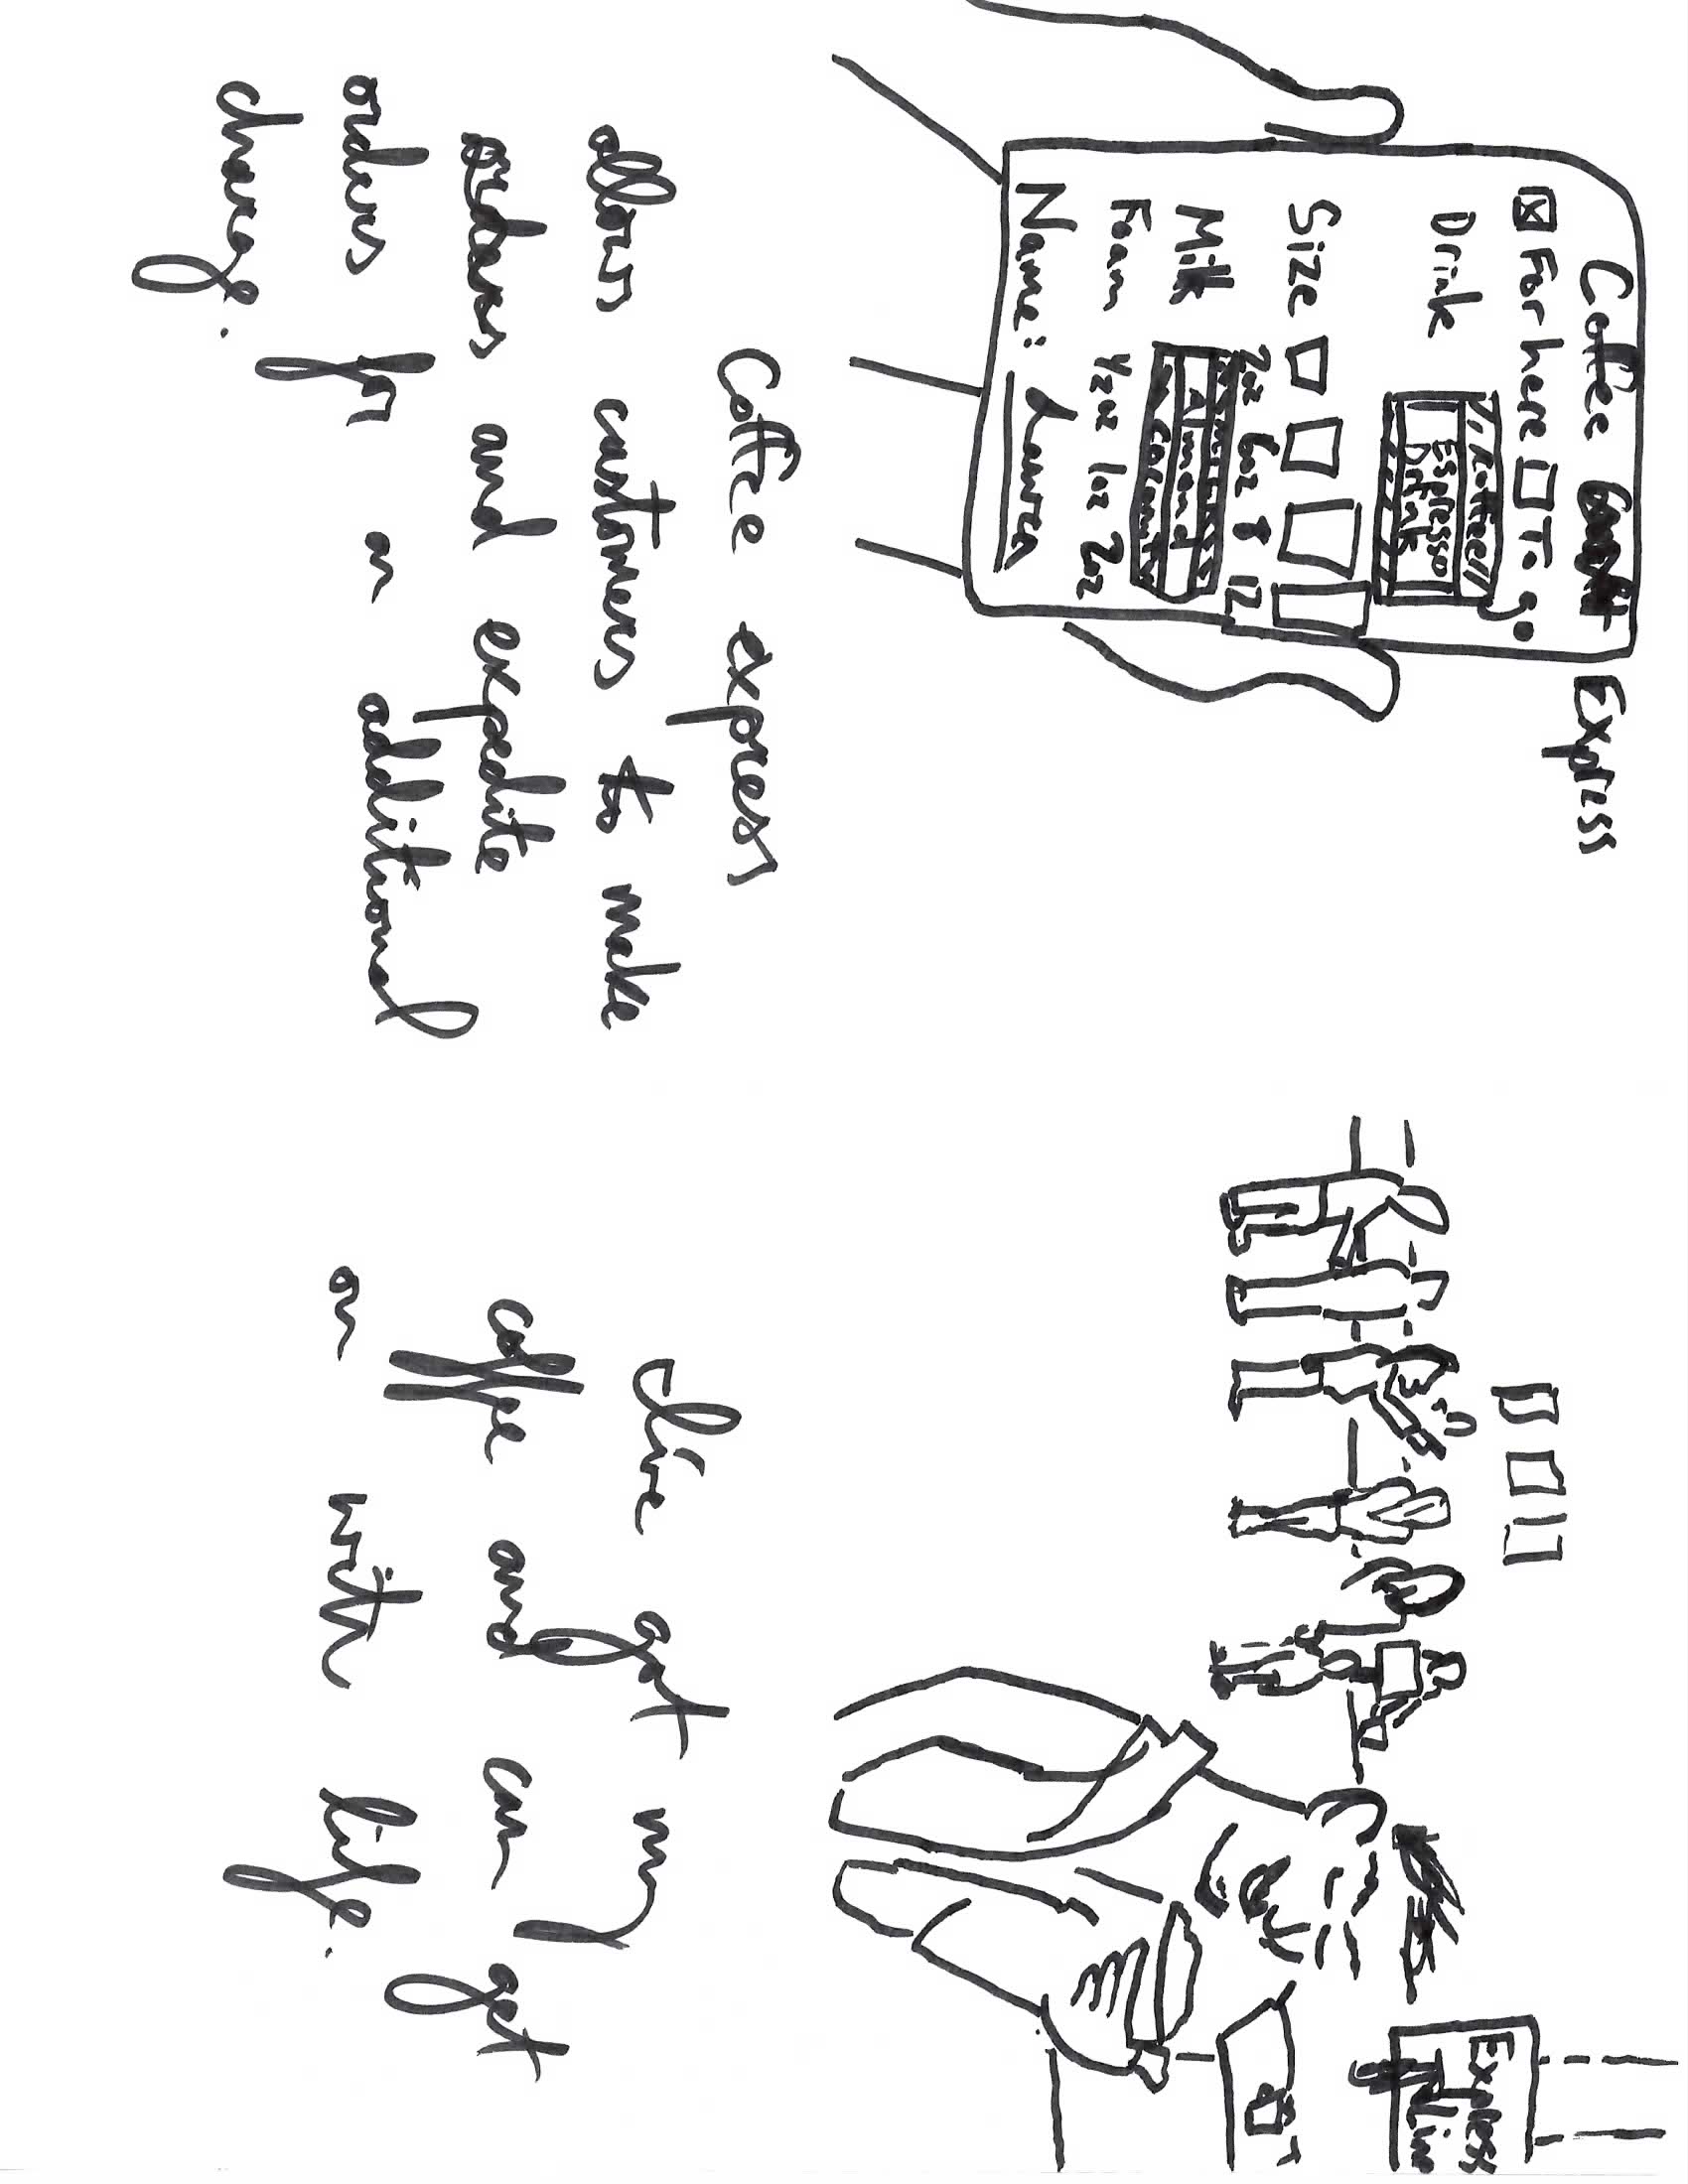 Coffee Express
☒ For here ☐ To go
Drink
Espresso
Size
2oz 6oz 8 12
Milk
Almond
Foam ½oz 1oz 2oz
Name: Laura
Coffee express
allows customers to make
orders and expedite
orders for an additional
charge.
Express
Line
Clive got my
coffee and can get
on with life.